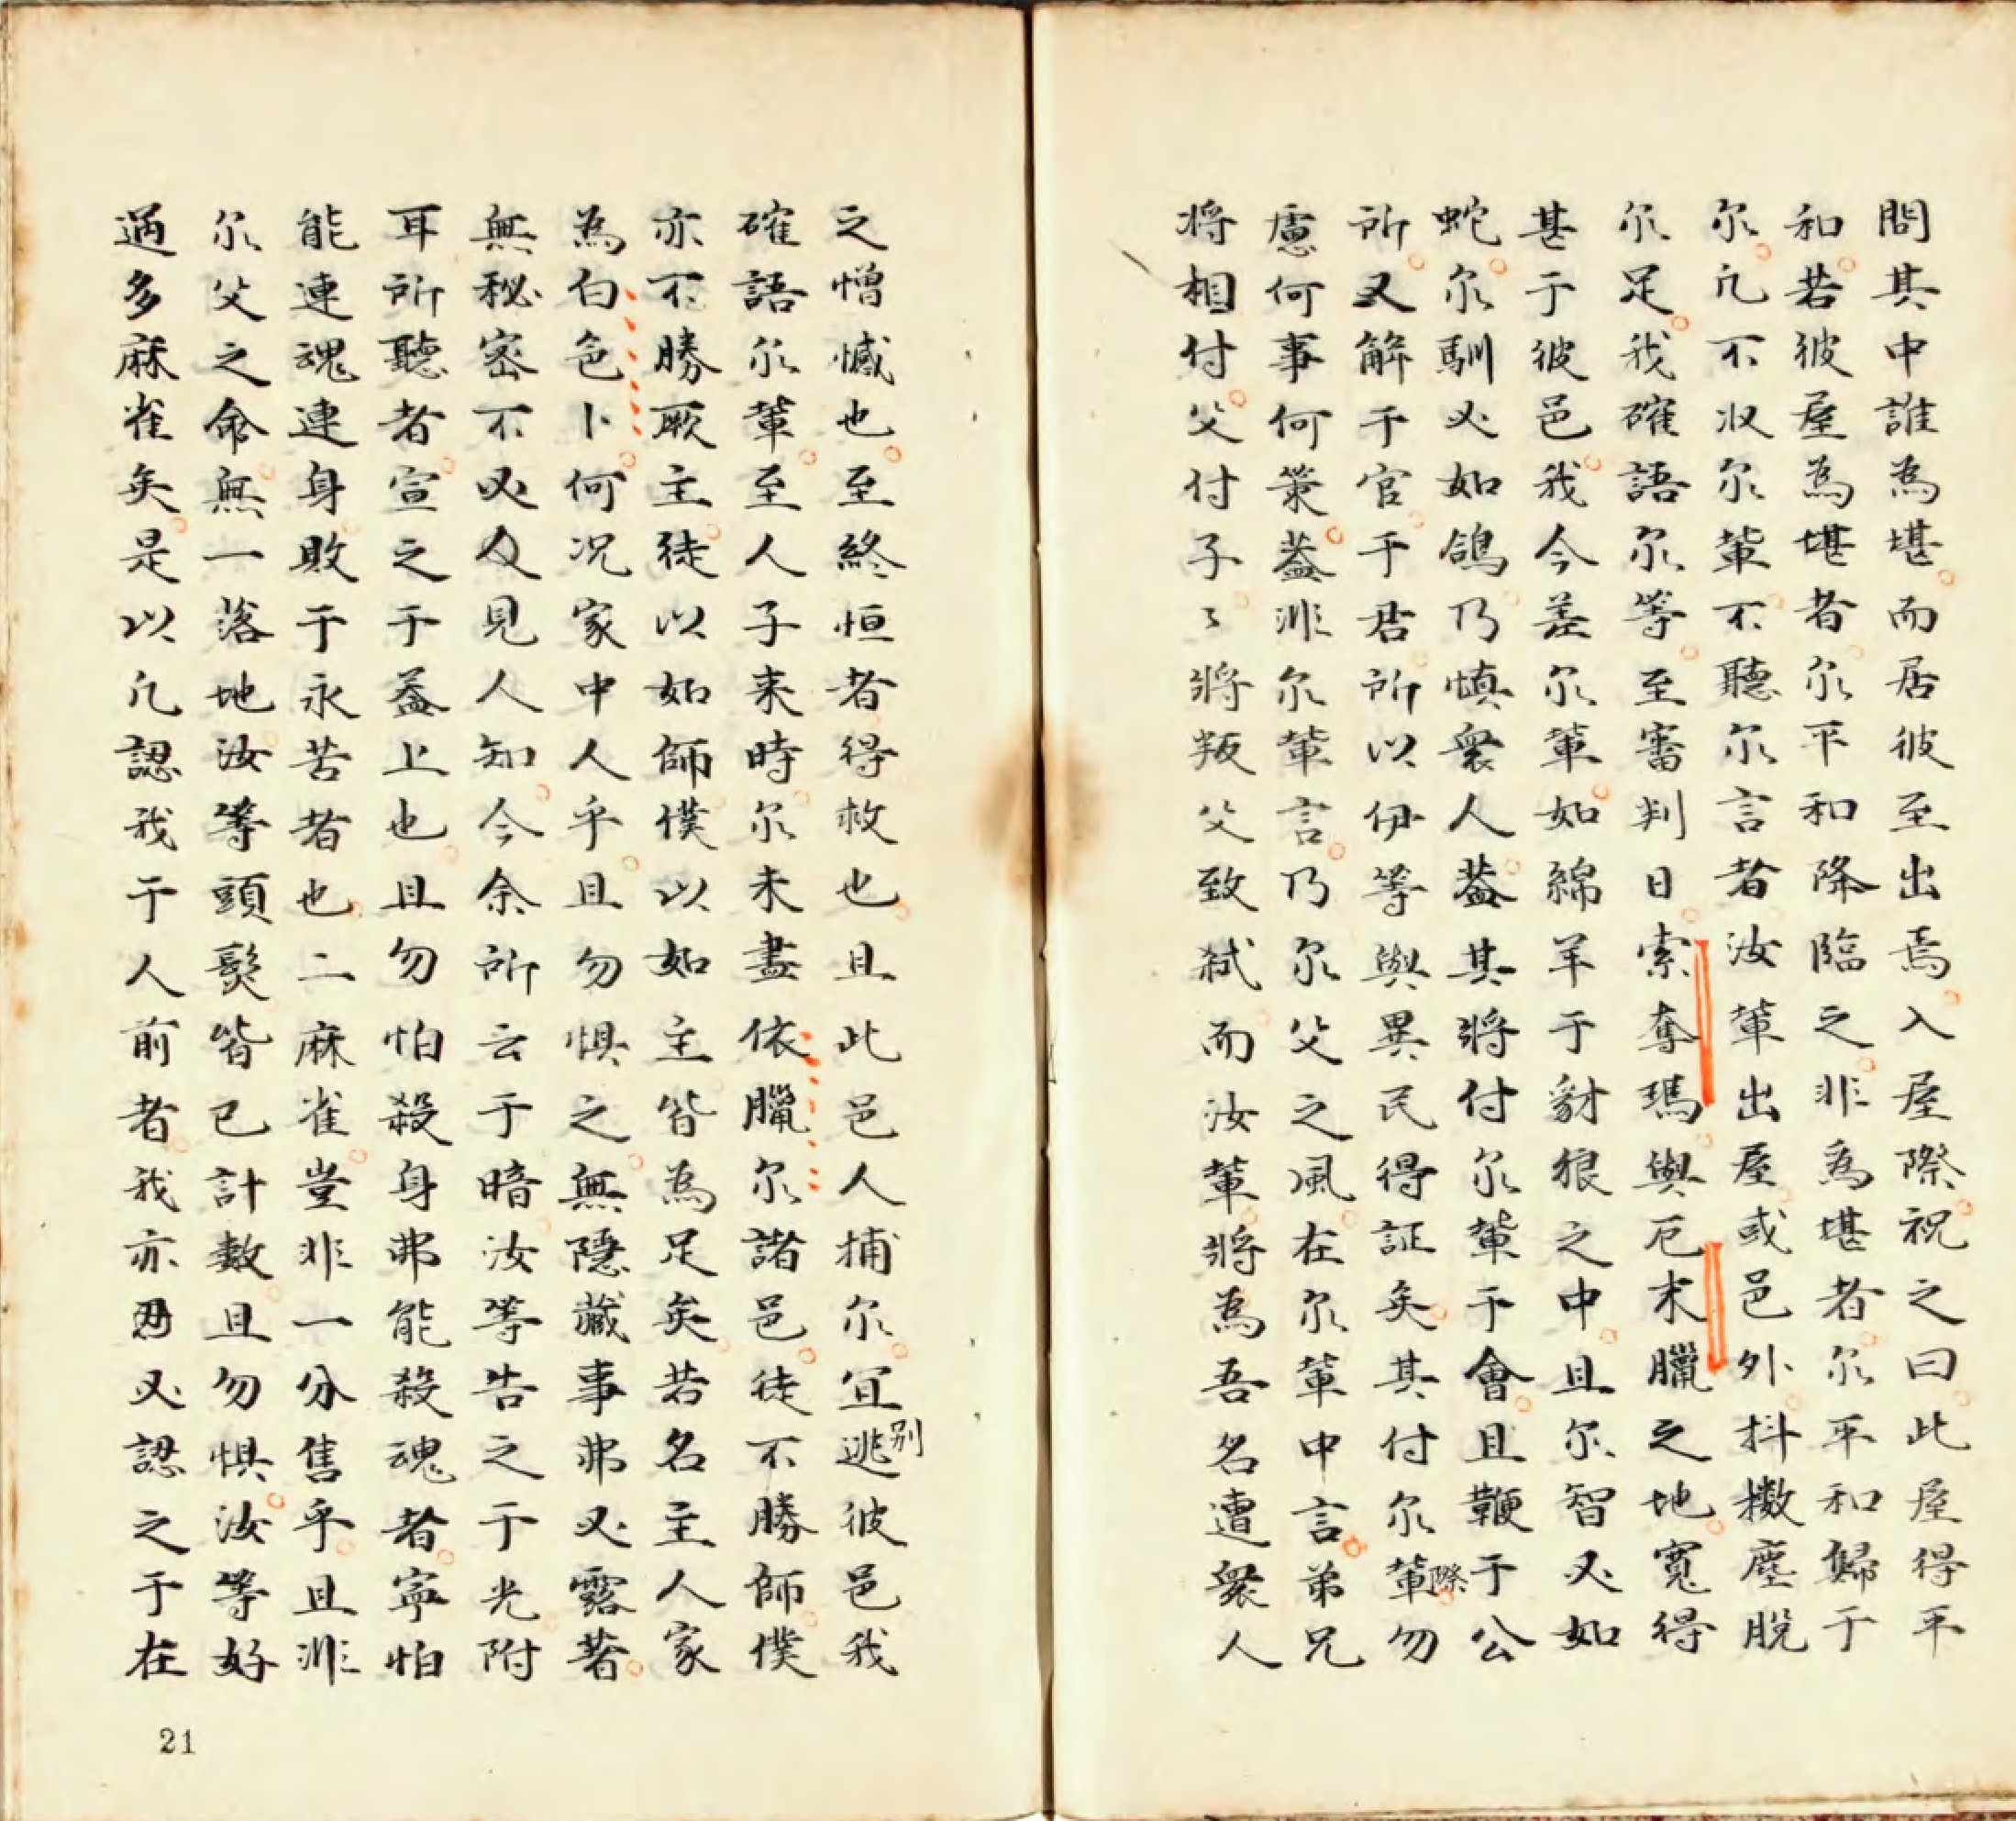 問其中誰為堪而居彼至出焉入屋際祝之曰此屋得平
和若彼屋為堪者尔平和降臨之非為堪者尔平和歸于
尔凢不收尔輩不聽尔言者汝輩出屋或邑外抖擻塵脫
尔足我確語尔等至審判日索奪瑪與厄末臘之地寬得
甚于彼邑我今差尔輩如綿羊于豺狼之中且尔智必如
蛇尔馴必如鴿乃慎衆人蓋其將付尔輩于會且鞭于公
所又解于官于君所以伊等與異民得証矣其付尔輩際勿
慮何事何策蓋非尔輩言乃尔父之風在尔輩中言弟兄
將相付父付子〻將叛父致弒而汝輩將為吾名遭衆人
之憎憾也至終恒者得救也且此邑人捕尔冝逃别彼邑我
確語尔輩至人子来時尔未盡依臘尔諸邑徒不勝師僕
亦不勝厥主徒以如師僕以如主皆為足矣若名主人家
為白色卜何况家中人乎且勿惧之無隱藏事弗必露著
無秘密不必及見人知今余所云于暗汝等告之于光附
耳所聽者宣之于蓋上也且勿怕殺身弗能殺魂者寧怕
能連魂連身敗于永苦者也二麻雀豈非一分售乎且非
尔父之命無一落地汝等頭髮皆已計數且勿惧汝等好
過多麻雀矣是以凢認我于人前者我亦必認之于在
21